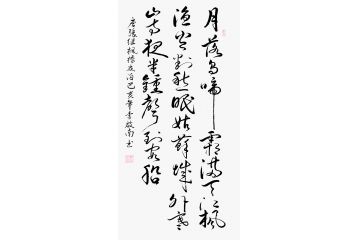 月落乌啼霜满天江枫
渔火对愁眠姑苏城外寒
山寺夜半钟声到客船
唐张继枫桥夜泊